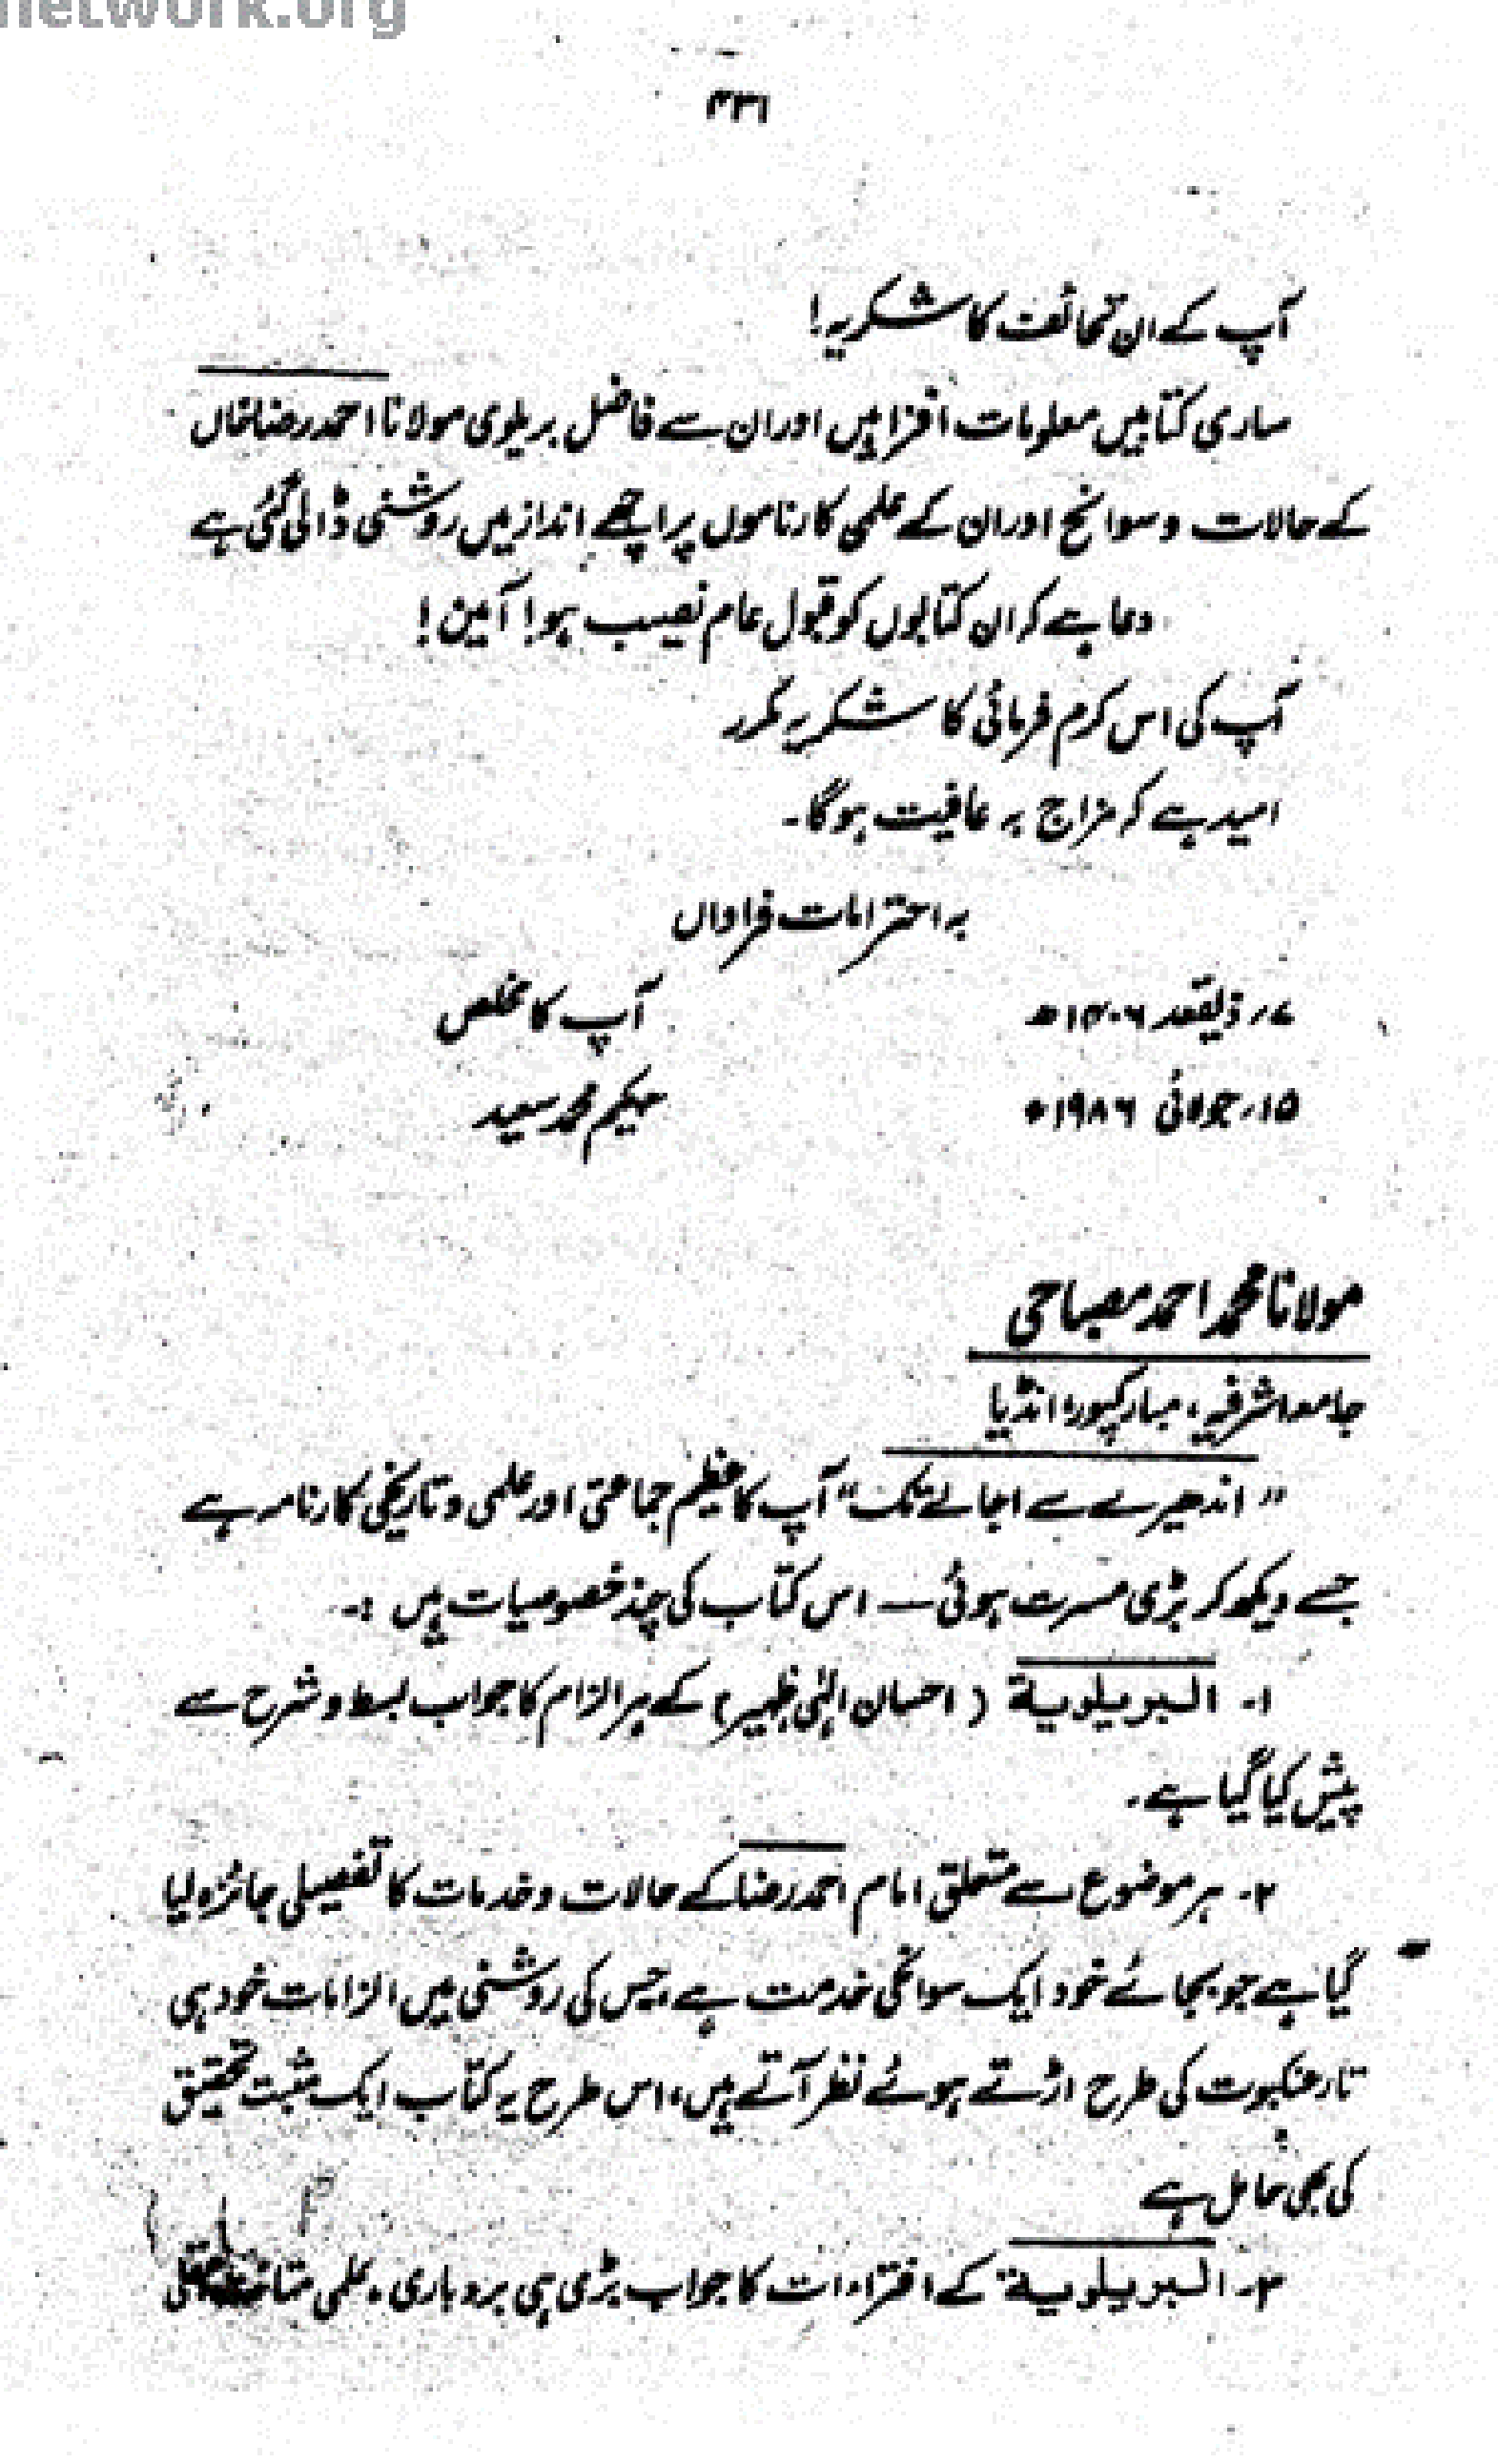 network.org
۴۳۱
آپ کے ان تحائف کا شکریہ!
ساری کتابیں معلومات افزا ہیں اور ان سے فاضل بریلوی مولانا احمد رضا خاں
کے حالات و سوانح اور ان کے علمی کارناموں پر اچھے انداز میں روشنی ڈالی گئی ہے
دعا ہے کہ ان کتابوں کو قبول عام نصیب ہو! آمین!
آپ کی اس کرم فرمائی کا شکریہ مکرر
امید ہے کہ مزاج بہ عافیت ہوگا۔
بہ احترامات فراواں
۷؍ ذیقعد ۱۴۰۶ھ آپ کا مخلص
۱۵؍ جولائی ۱۹۸۶ء حکیم محمد سعید
مولانا محمد احمد مصباحی
جامعہ اشرفیہ، مبارکپور، انڈیا
"اندھیرے سے اجالے تک" آپ کا عظیم جماعتی اور علمی و تاریخی کارنامہ ہے
جسے دیکھ کر بڑی مسرت ہوئی — اس کتاب کی چند خصوصیات ہیں :۔
۱۔ البریلویۃ (احسان الٰہی ظہیر) کے ہر الزام کا جواب بسط و شرح سے
پیش کیا گیا ہے۔
۲۔ ہر موضوع سے متعلق امام احمد رضا کے حالات و خدمات کا تفصیلی جائزہ لیا
گیا ہے جو بجائے خود ایک سوانحی خدمت ہے، جس کی روشنی میں الزامات خود ہی
تار عنکبوت کی طرح اڑتے ہوئے نظر آتے ہیں، اس طرح یہ کتاب ایک مثبت تحقیق
کی بھی حامل ہے
۳۔ البریلویۃ کے افتراءات کا جواب بڑی ہی بردباری، علمی